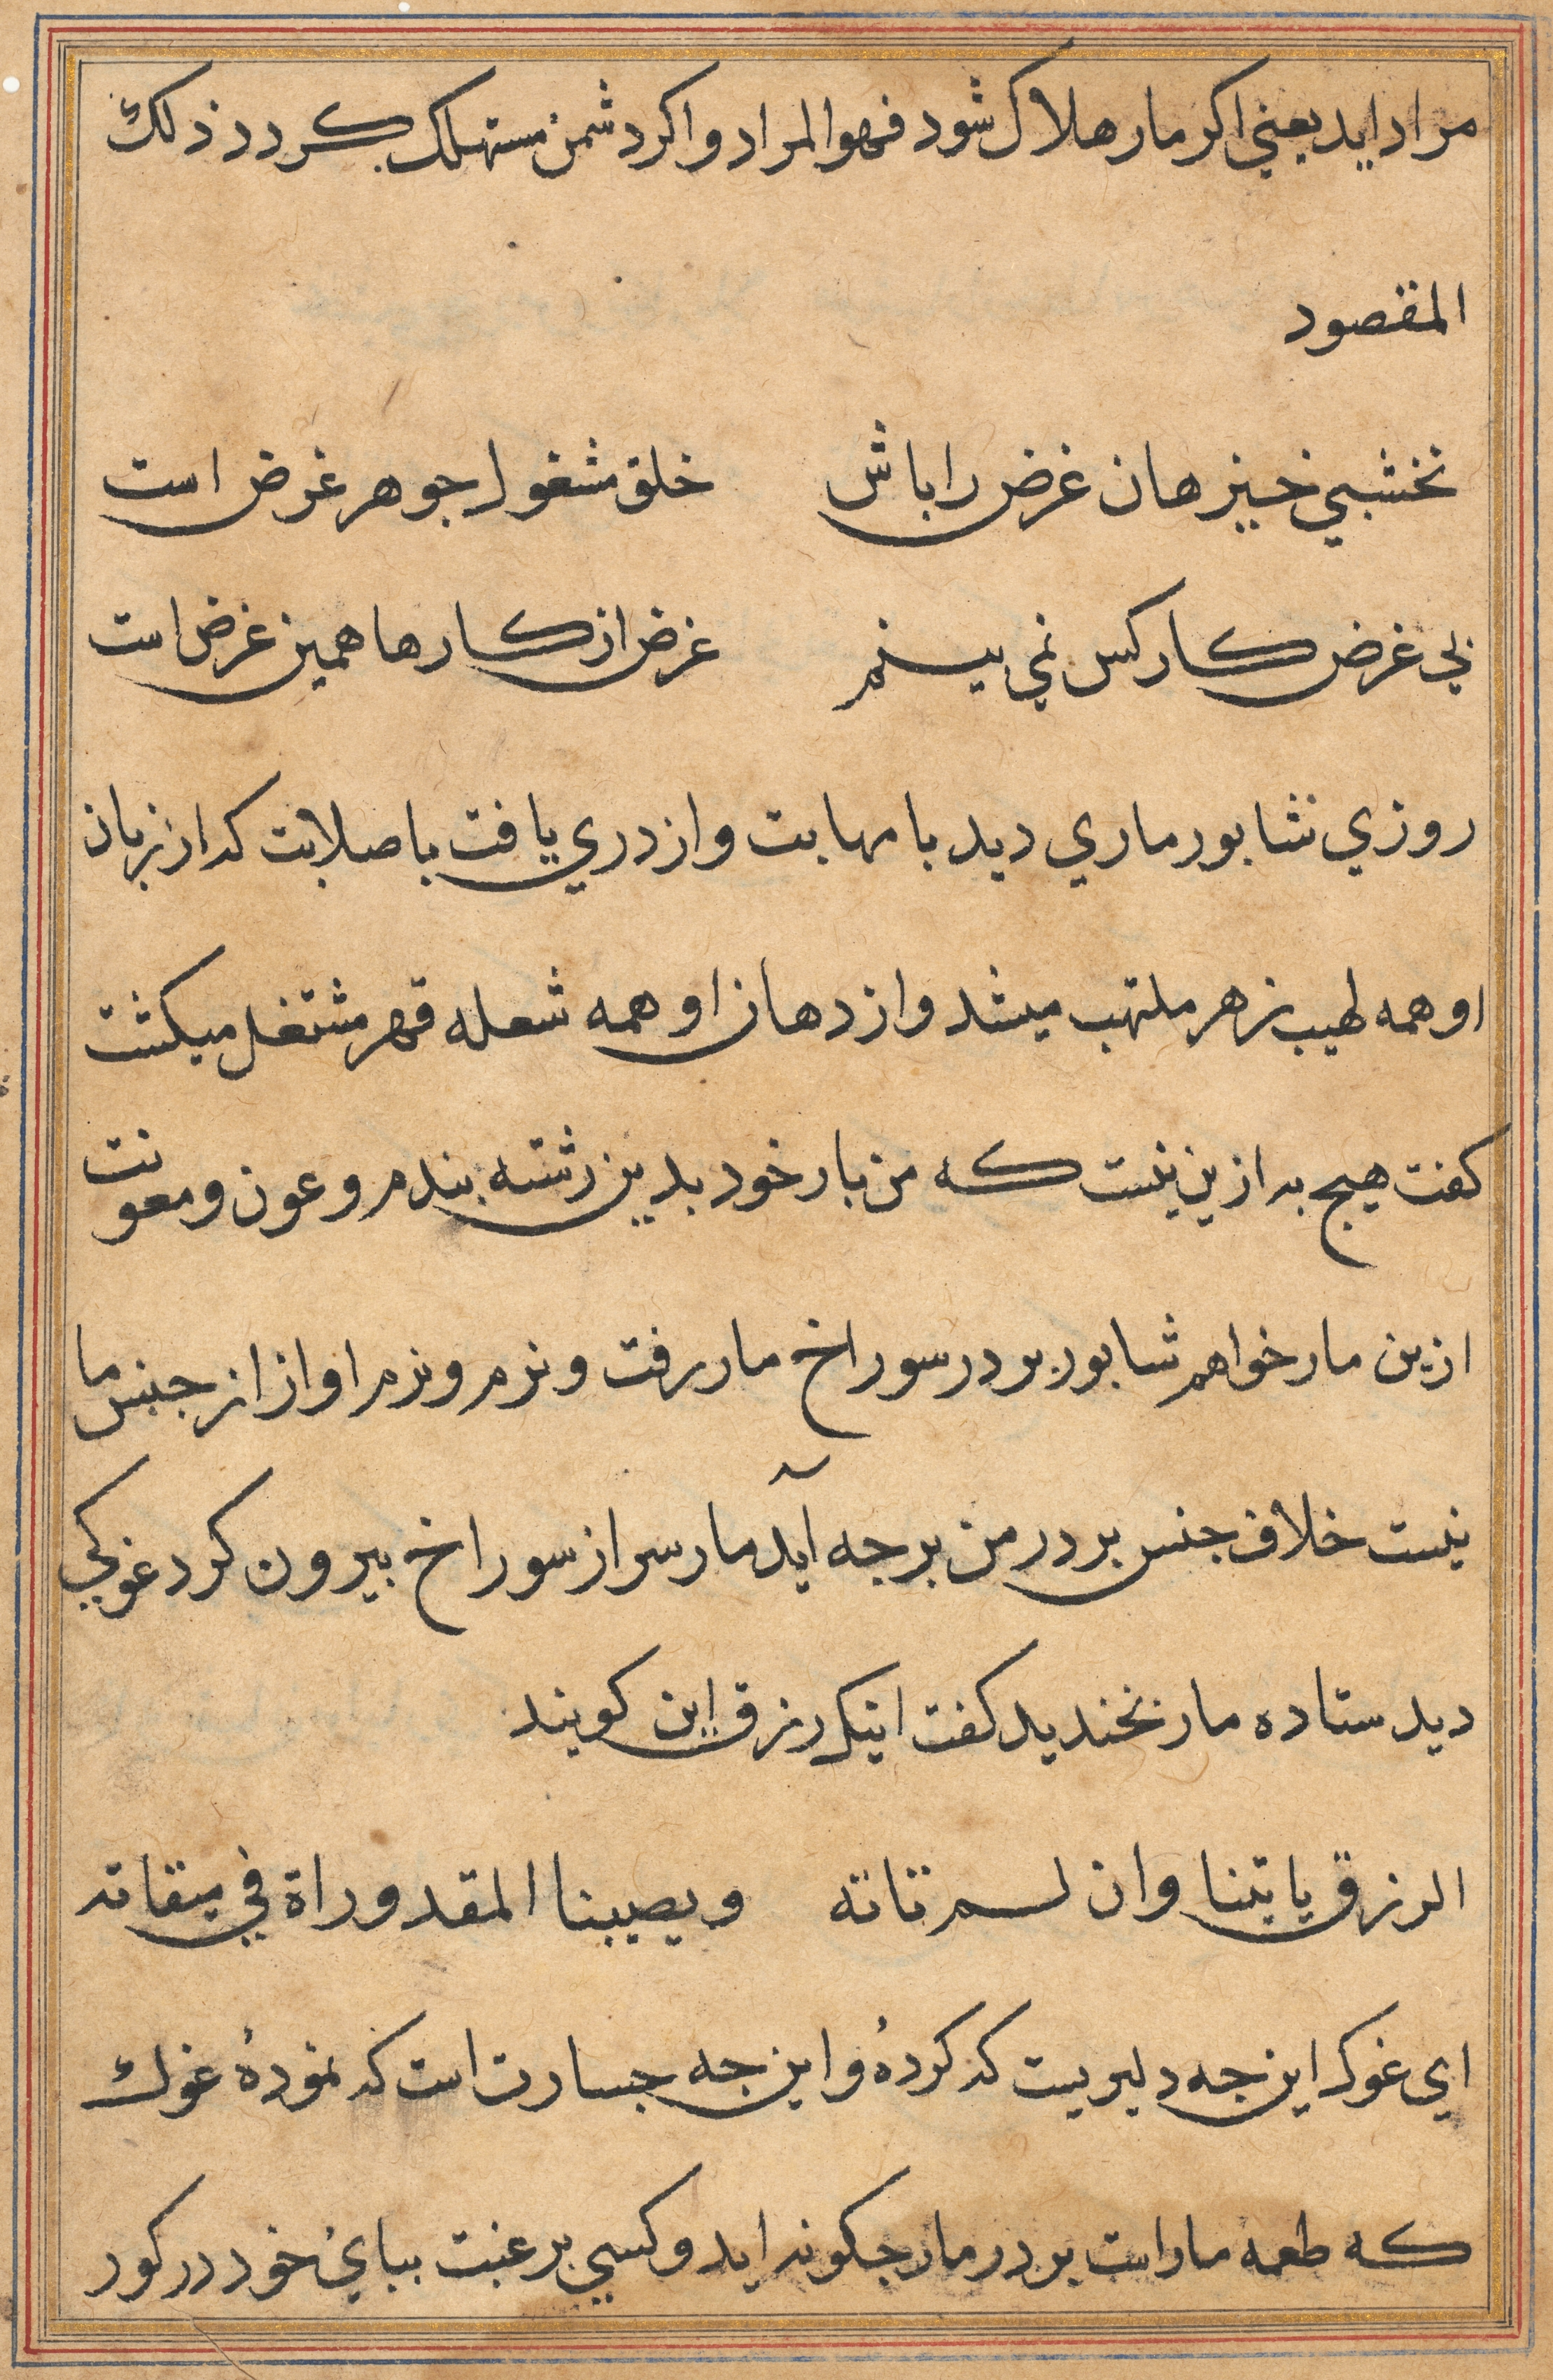 مراد ايد يعني اكر مار هلاك شود فهو المراد واكر دشمن مستهلك كردد ذلك
المقصود
نخشبي خيز هان غرض را باش خلق مشغول جوهر غرض است
بي غرض كار كس نمي بينم غرض از كارها همين غرض است
روزي شابور ماري ديد با مهابت واز دري يافت با صلابت كه از زبان
او همه لهيب زهر ملتهب ميشد واز دهان او همه شعله قهر مشتغل ميكشت
كفت هيج به ازين نيست كه من بار خود بدين رشته بندم وعون ومعونت
ازين مار خواهم شابور بر در سوراخ مار رفت ونرم ونرم اواز از جنس ما
نيست خلاف جنس بر در من برجه آيد مار سر از سوراخ بيرون كرد غوكي
ديد ستاده مار نخنديد كفت اينك رزق اين كويند
الرزق ياتينا وان لم تاته ويصيبنا المقدوراة في ميقاته
اي غوك اين جه دليريست كه كردۀ واين جه جسارت است كه نمودۀ غوك
كه طعمه مار است بر در مار جكونه ايد وكسي برغبت بباي خود در كور